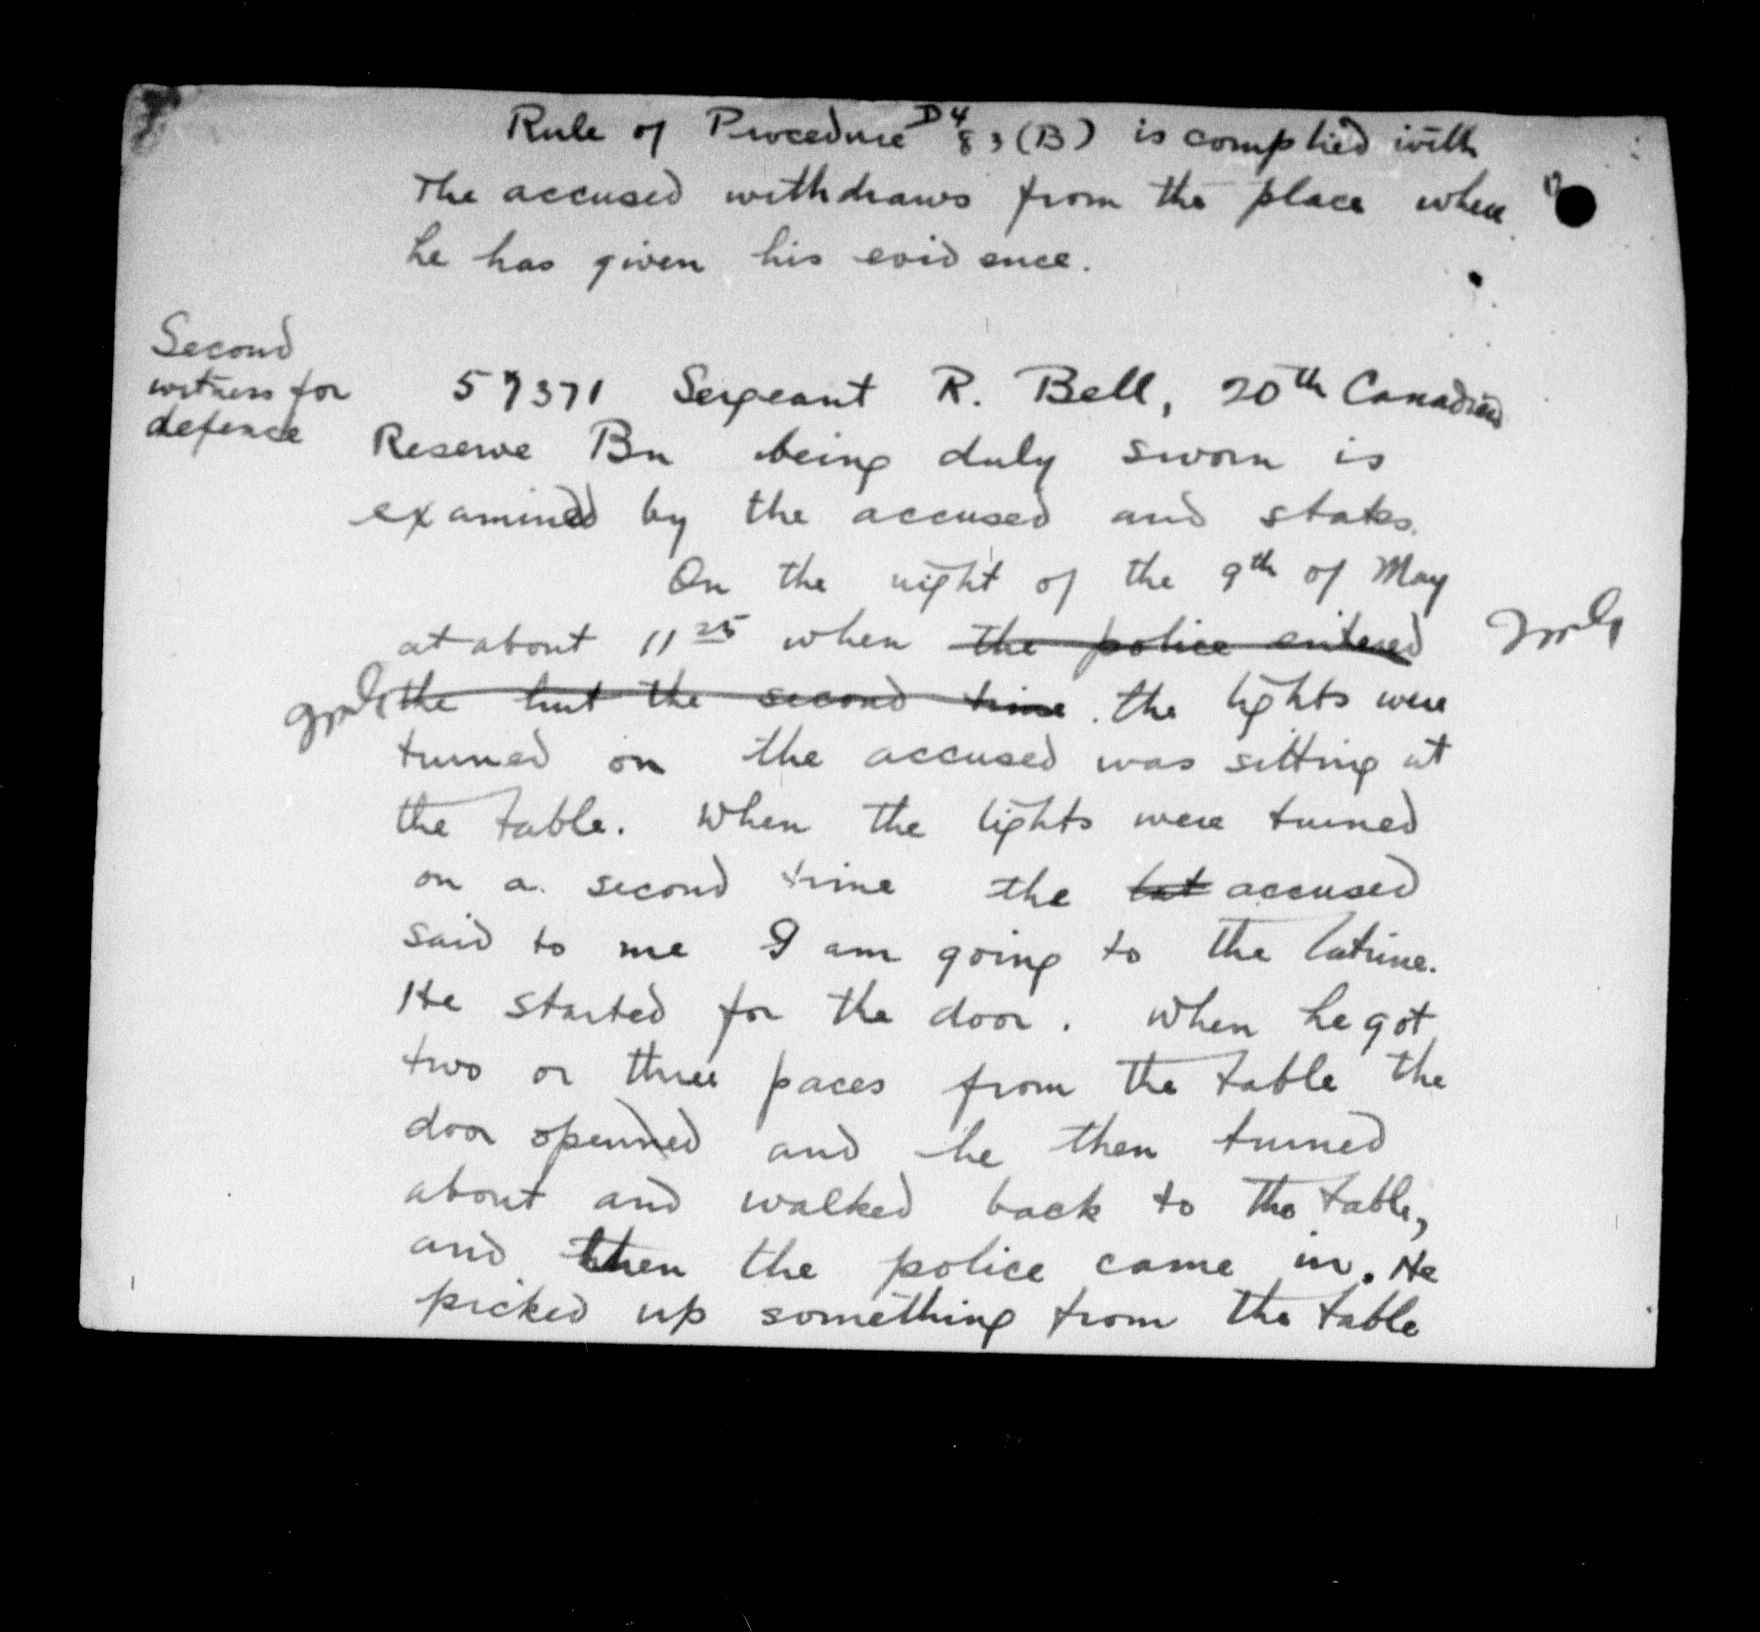 Rule of Procedure D4 83 (B) is complied with
The accused withdraws from the place where
he has given his evidence.
Second
witness for
defence
57371 Sergeant R. Bell, 20th Canadian
Reserve Bn being duly sworn is
examined by the accused and states.
On the night of the 9th of May
at about 11 25 when the police entered
the hut the second time. the lights were
turned on the accused was sitting at
the table. When the lights were turned
on a second time the lat accused
said to me I am going to the latrine.
He started for the door. When he got
two or three paces from the table the
door openned and he then turned
about and walked back to the table,
and then the police came in. He
picked up something from the table